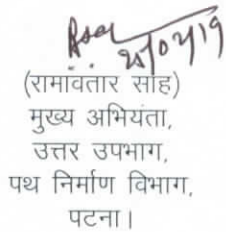 25/02/19
(रामावतार साह)
मुख्य अभियंता,
उत्तर उपभाग,
पथ निर्माण विभाग,
पटना।